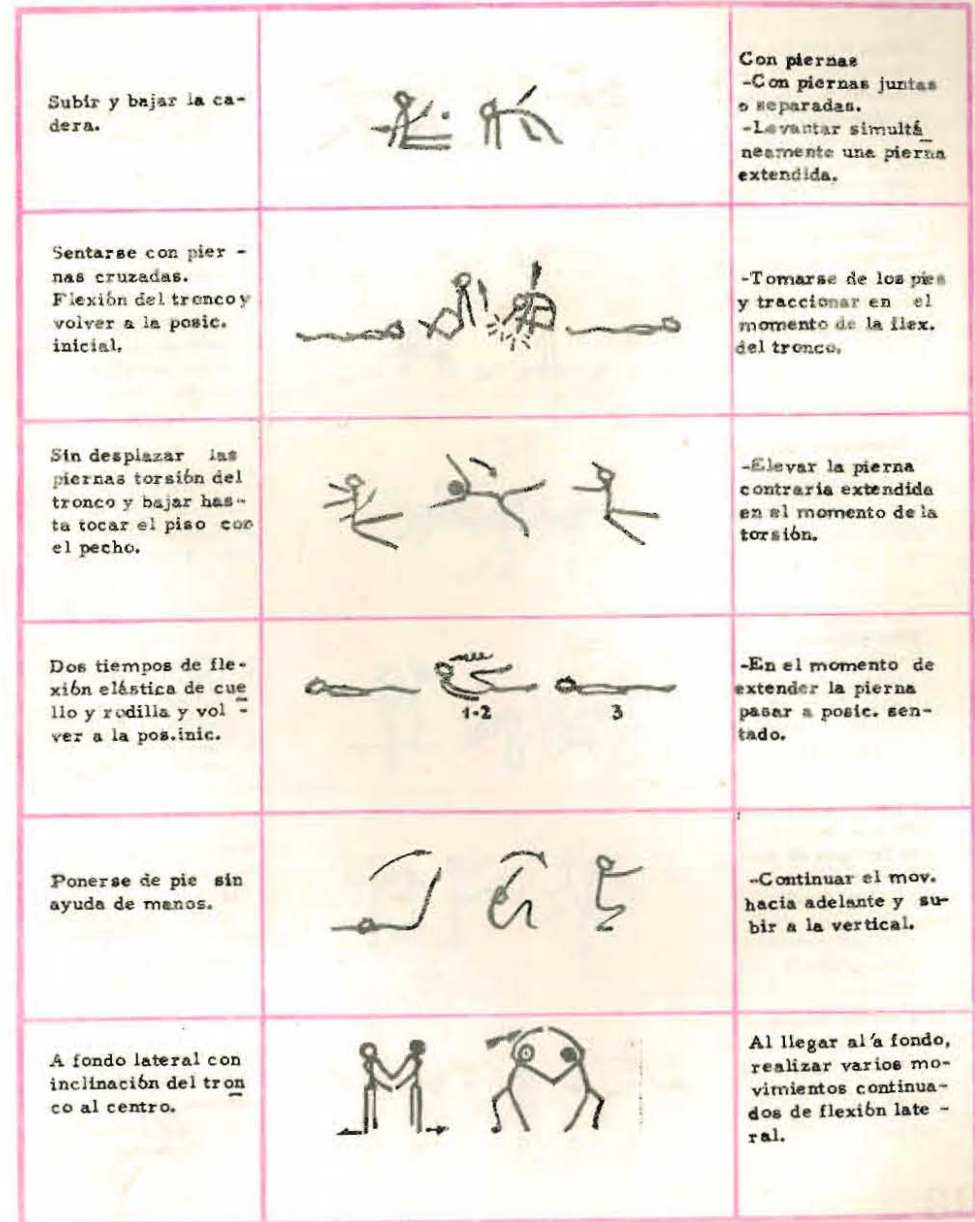 Subir y bajar la ca-
dera.
Con piernas
-Con piernas juntas
o separadas.
-Levantar simultá
neamente una pierna
extendida.
Sentarse con pier -
nas cruzadas.
Flexión del tronco y
volver a la posic.
inicial.
-Tomarse de los pies
y traccionar en el
momento de la flex.
del tronco.
Sin desplazar las
piernas torsión del
tronco y bajar has-
ta tocar el piso con
el pecho.
-Elevar la pierna
contraria extendida
en el momento de la
torsión.
Dos tiempos de fle-
xión elástica de cue
llo y rodilla y vol -
ver a la pos.inic.
1-2
3
-En el momento de
extender la pierna
pasar a posic. sen-
tado.
Ponerse de pie sin
ayuda de manos.
-Continuar el mov.
hacia adelante y su-
bir a la vertical.
A fondo lateral con
inclinación del tron
co al centro.
Al llegar al'a fondo,
realizar varios mo-
vimientos continua-
dos de flexión late -
ral.